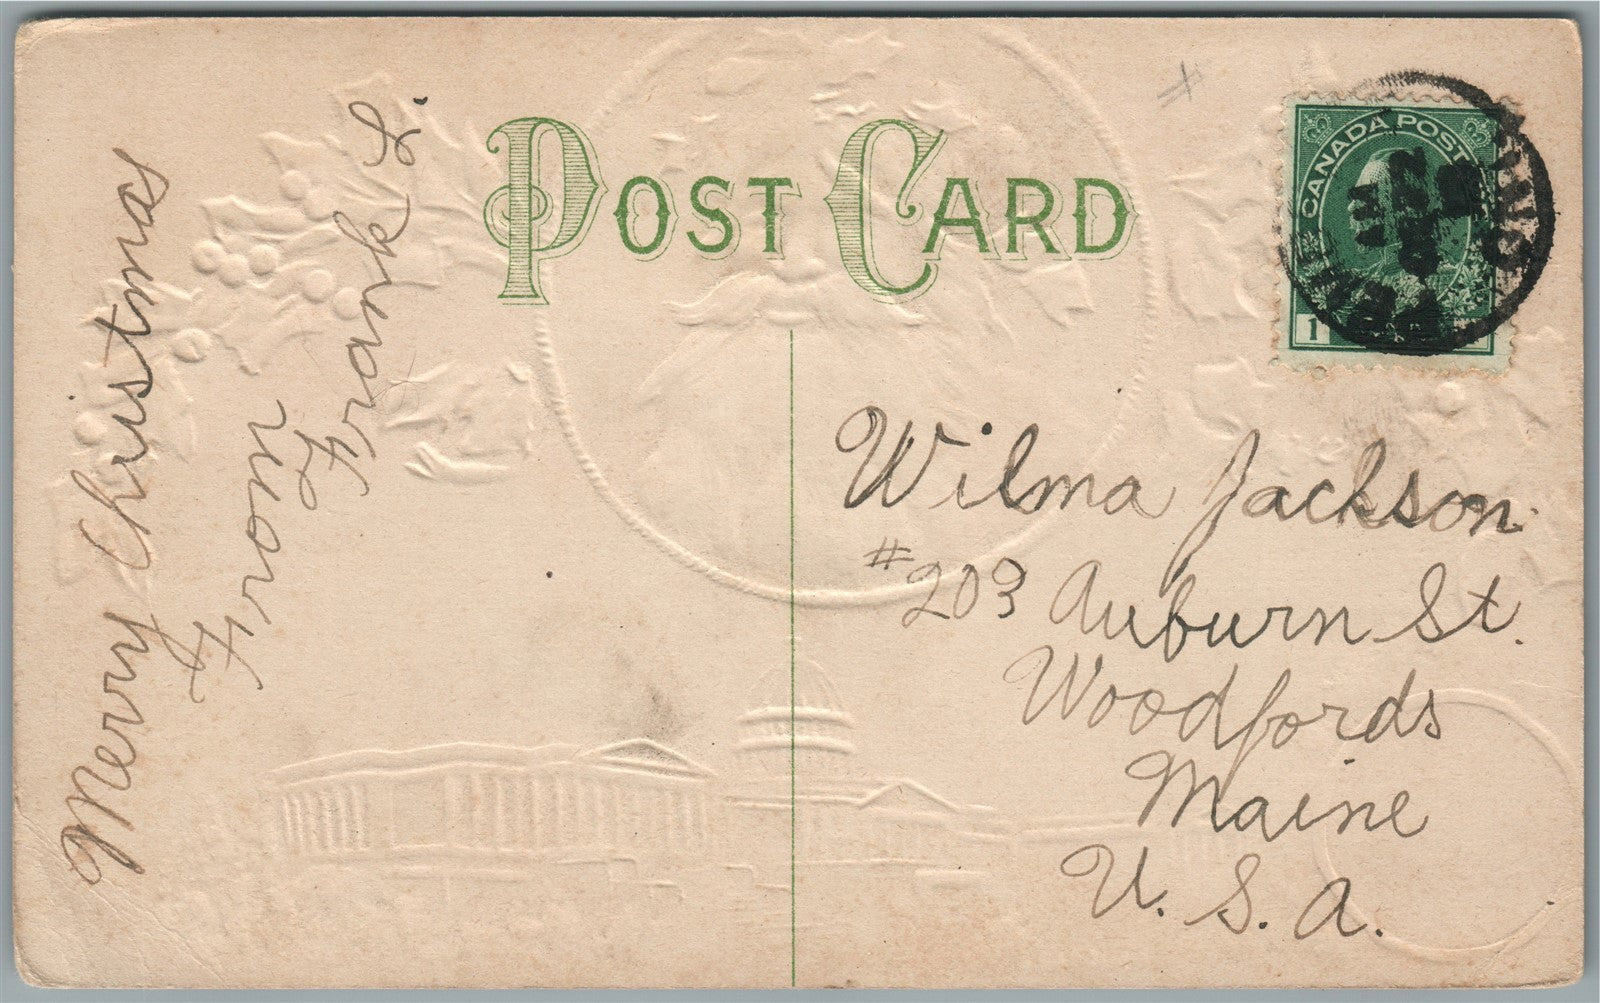 POST CARD
CANADA POST
1
Merry Christmas
From
Frank S.
Wilma Jackson
#203 Auburn St.
Woodfords
Maine
U. S. A.